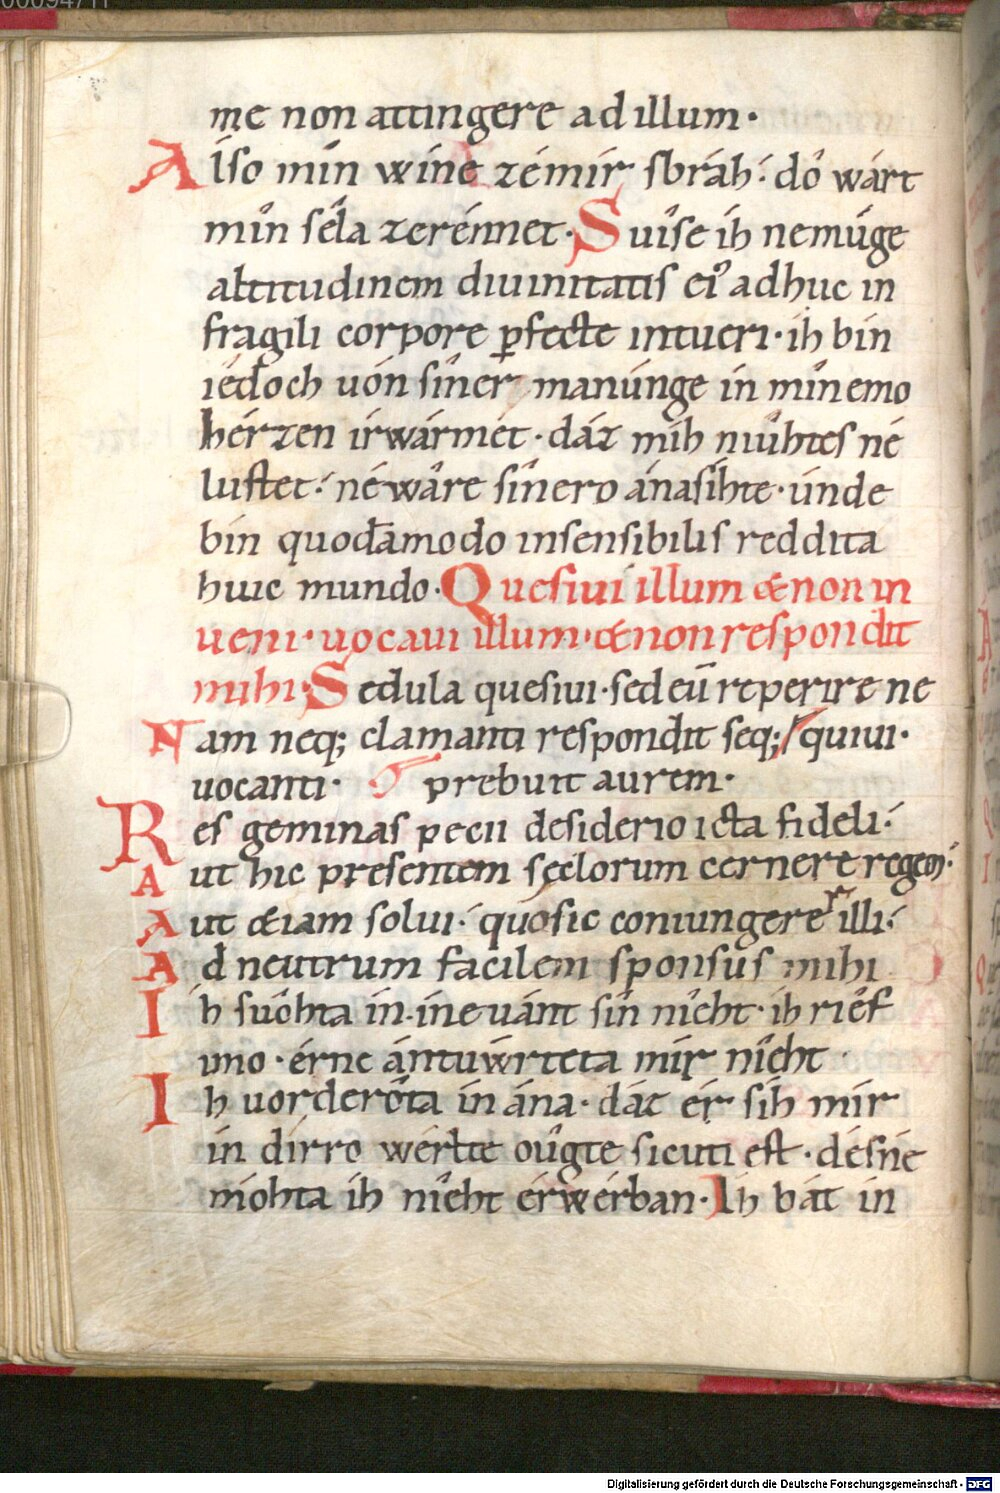 me non attingere ad illum·
Also min wine zémir sbráh· dô wárt
mîn sêla zerénnet· Suîse ih nemúge
altitudinem diuinitatis eiꝰ adhuc in
fragili corpore ꝑfecte intueri· ih bin
iédoch uón sîner manúnge in mînemo
hérzen irwármet· dáz mih niûhtes né
lustet· né wâre sînero ánasihte· únde
bin quodāmodo insensibilis reddita
huic mundo· Quesiui illum & non in
ueni· uocaui illum· & non respondit
mihi· Sedula quesiui· sed eū reperire ne
Nam neq; clamanti respondit seq; / quiui·
uocanti· prebuit aurem·
Res geminas pecii desiderio icta fideli·
Aut hic presentem sęclorum cernere regem·
Aut &iam solui· quo sic coniungerer illi·
Ad neutrum facilem sponsus mihi
Ih suôhta in· ine uánt sin nîeht· ih rîef
imo· érne ántuẃrteta mir nîeht
Ih uorderôta in ána· dát ér sih mir
in dirro werlte oûgte sicuti est· désné
mohta ih nîeht erwérban· Ih bát in
Digitalisierung gefördert durch die Deutsche Forschungsgemeinschaft - DFG